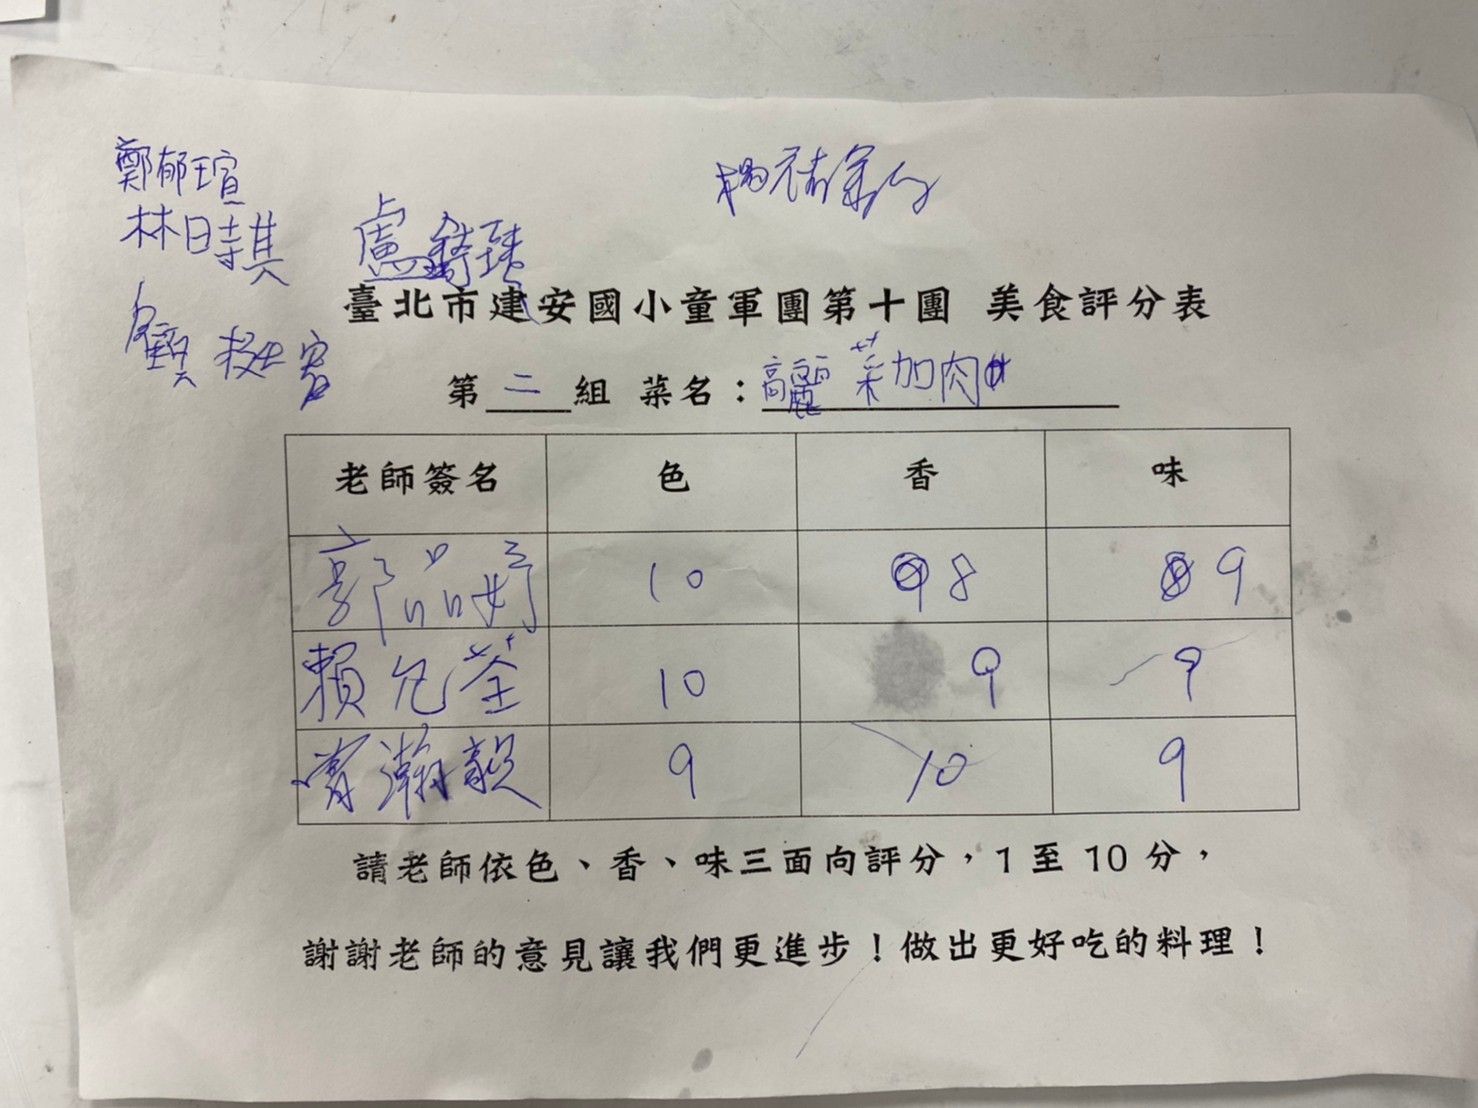 鄭郁瑄
林時淇
盧錡臻
臺北市建安國小童軍團第十團 美食評分表
第二組 菜名：高麗菜加肉
老師簽名 色 香 味
郭品妤 10 8 9
賴允荃 10 9 9
瀚毅 9 10 9
請老師依色、香、味三面向評分，1 至 10 分，
謝謝老師的意見讓我們更進步！做出更好吃的料理！